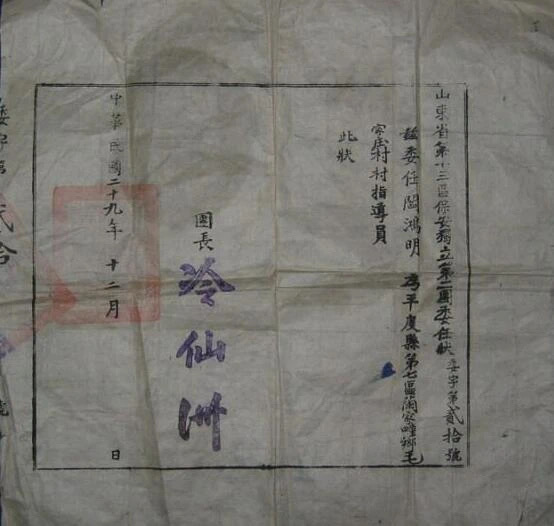 山東省第十三區保安獨立第二團委任狀 委字第貳拾號
茲委任閻鴻明 為平度縣第七區蘭家疃鄉毛
家庄村村指導員
此狀
團長 冷仙洲
中華民國二十九年 十二月 日
委字第貳拾 號